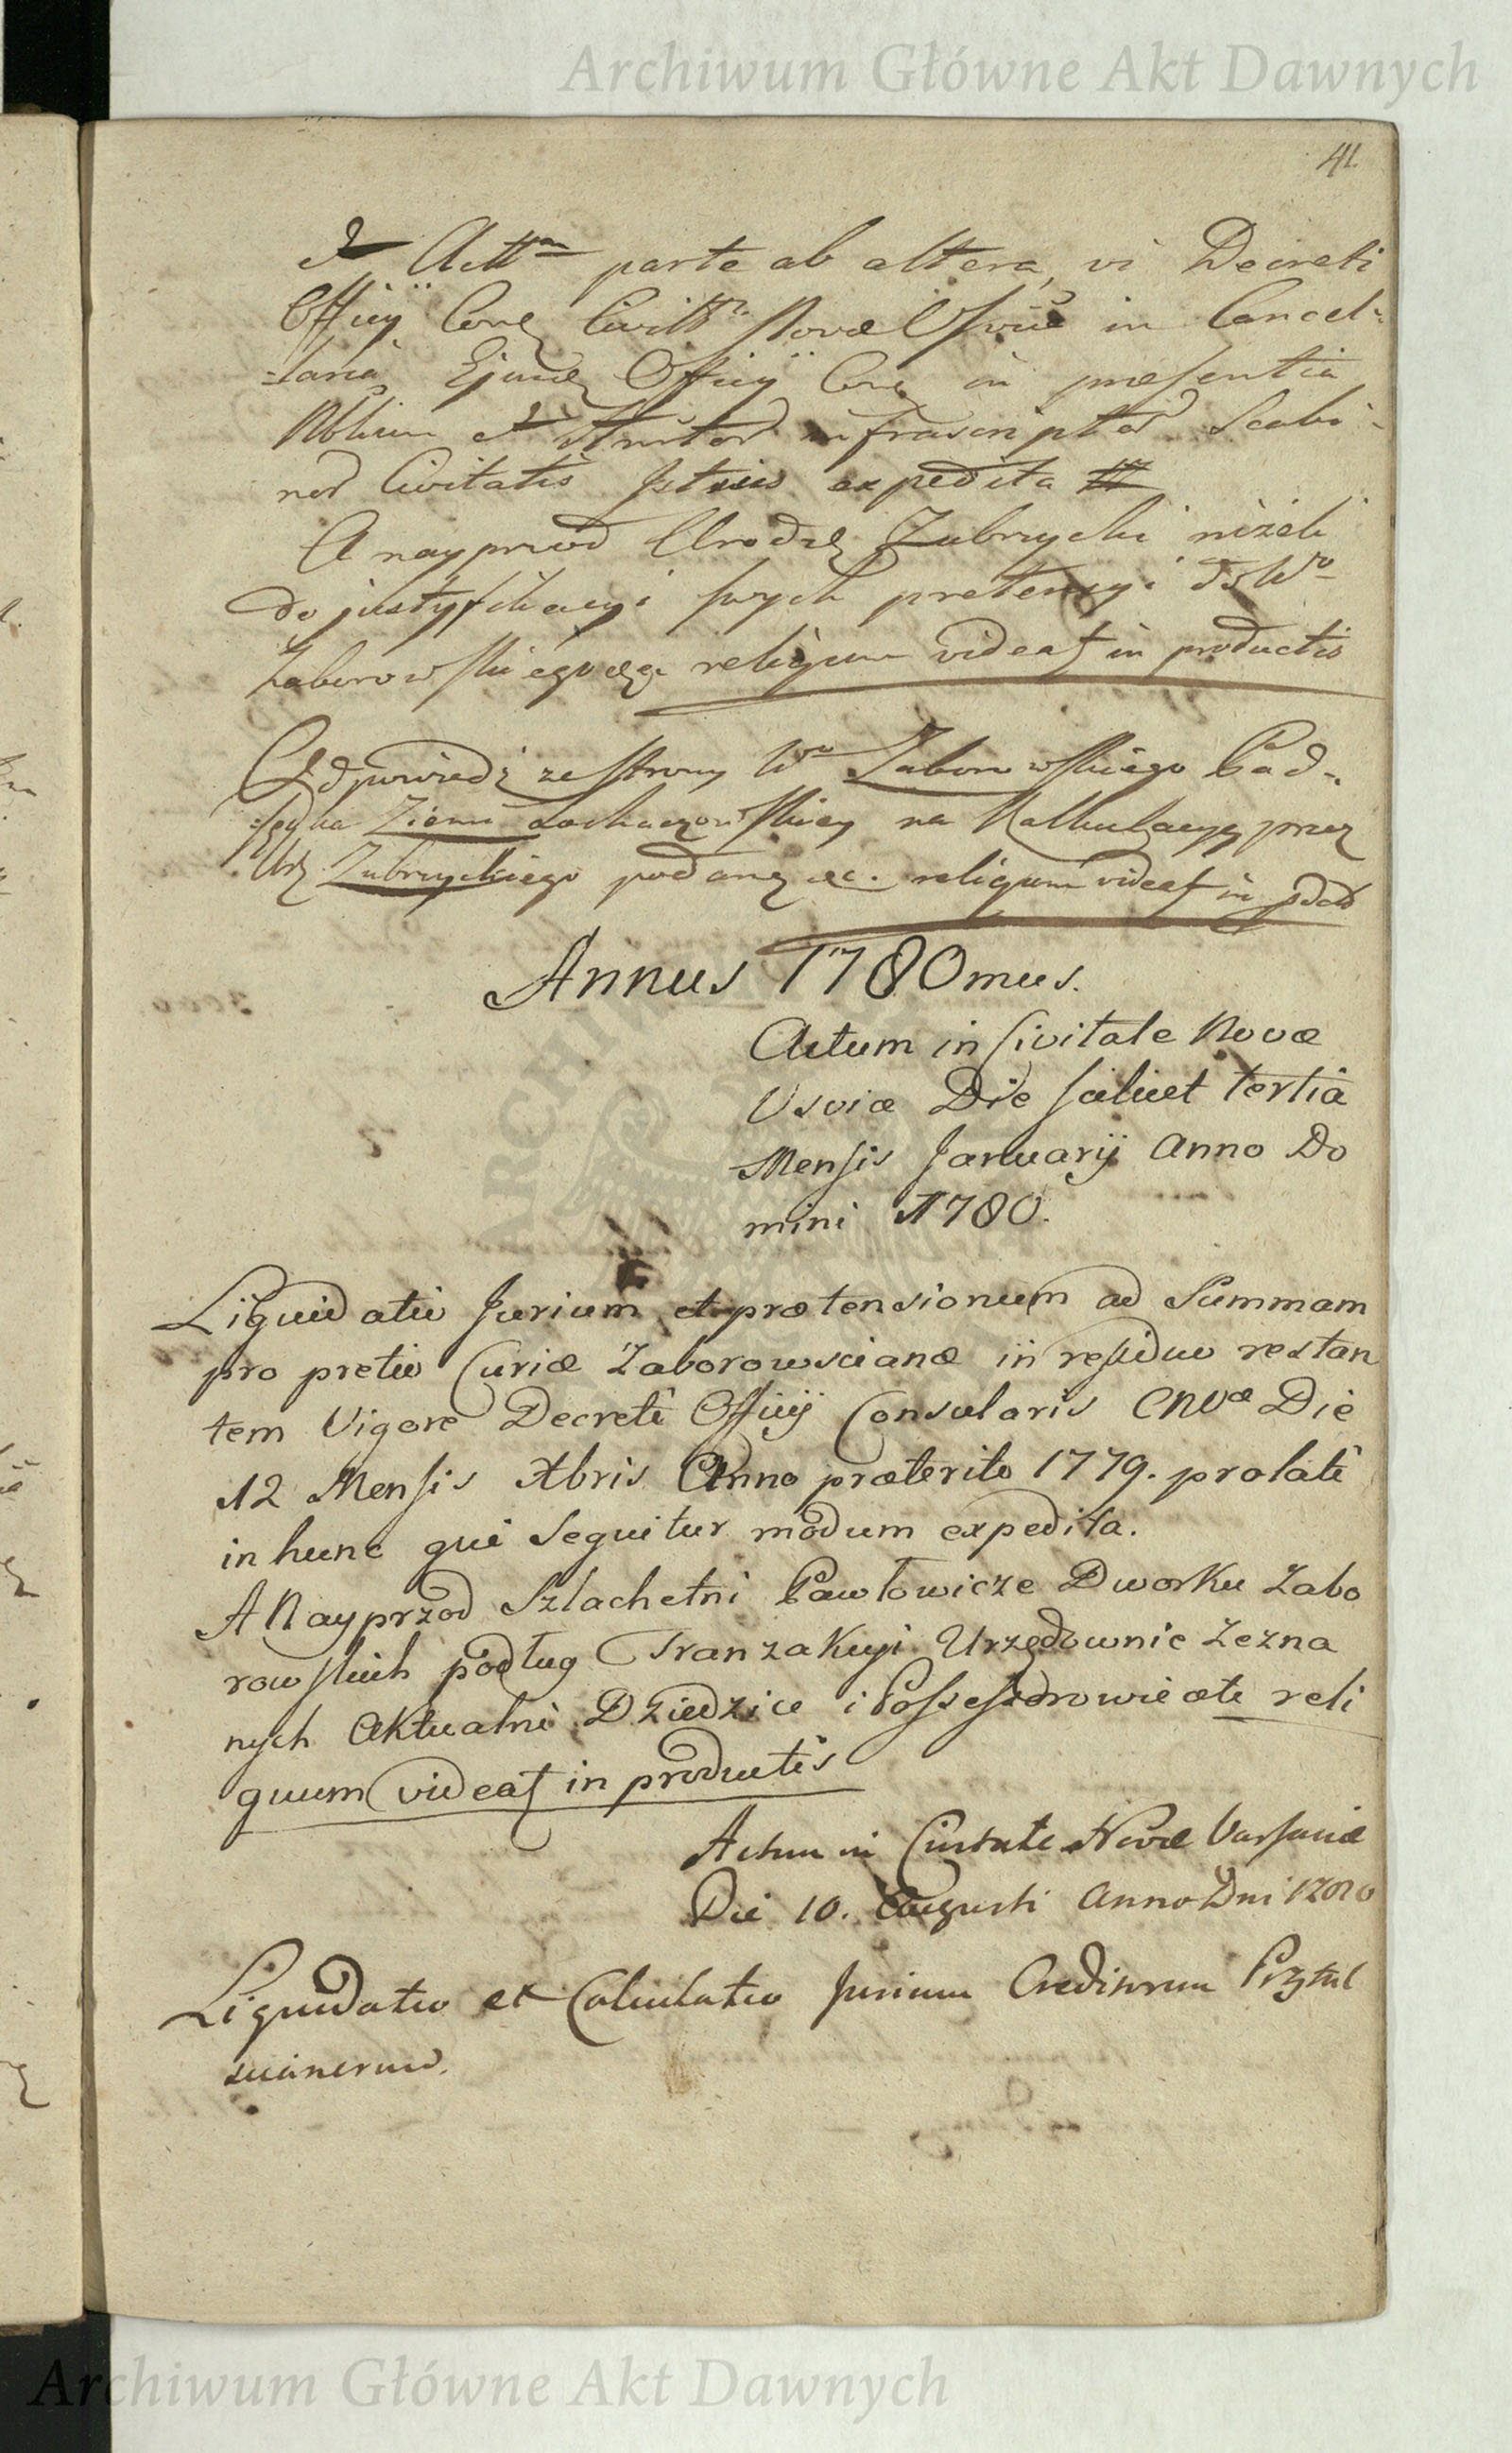 Archiwum Główne Akt Dawnych
41.
et Acttm parte ab altera, vi Decreti
Officy Conς Civittis Novæ Vsviæ in Cancel=
=laria Ejusdς Officy Conς in præsentia
Nblium et infrascriptor Scabi-
nor Civitatis Istius expedita
A nayprzod Urodzς Zubrzycki niżeli
do justyfikacyi swych pretensyi do Wo
Zaborowskiego &c religum videat in productis
Odpowiedź ze strony Wo Zaborowskiego Pod-
sędka Ziemi Sochaczowskiey na Kalkulacyę przez
Urς Zubrzyckiego podaną &c. religum videat in pdctis
Annus 1780mus.
Actum in Civitate Novæ
Vsviæ Die scilicet tertia
Mensis Januarij Anno Do
mini 1780.
Liquidatio Jurium et prætensionum ad Summam
pro pretio Curiæ Zaborowscianæ in residuo restan
tem Vigore Decreti Officij Consularis CNVæ Die
12 Mensis Xbris Anno præterito 1779. prolati
in hunc qui sequitur modum expedita.
A Nayprzod Szlachetni Pawłowicze Dworku Zabo
rowskich podług Tranzakcyi Urzędownie zezna
nych Aktualni Dziedzice i Possessorowie &te reli
quum videat in productis
Actum in Civitate Novæ Varsaviæ
Die 10. Augusti Anno Dni 1780
Liquidatio et Calculatio Jurium Creditorum Przytul
scianorum.
Archiwum Główne Akt Dawnych